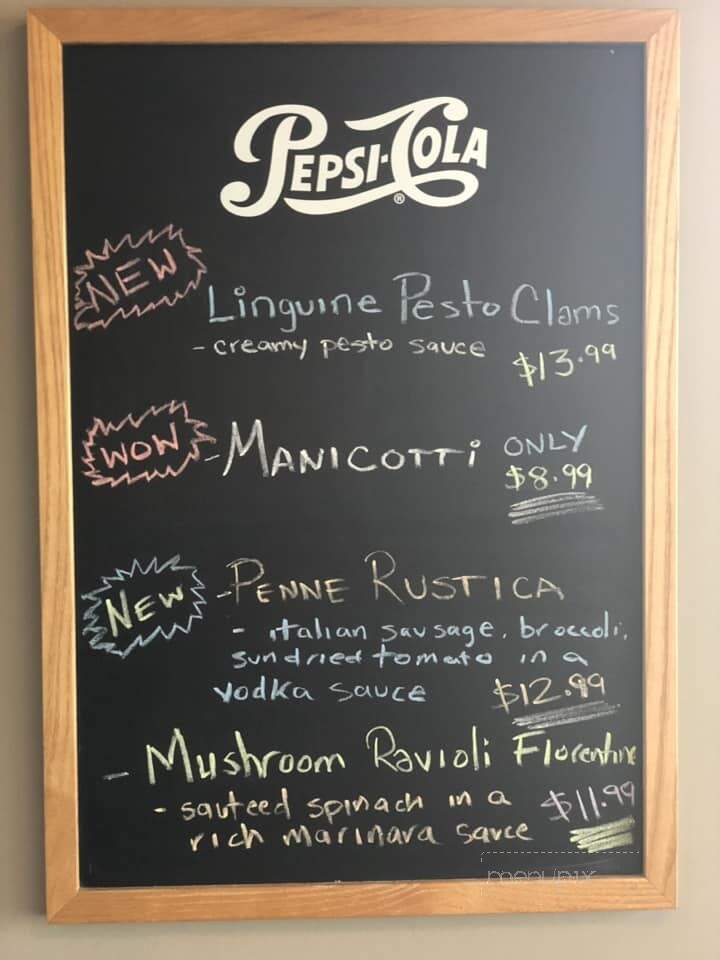 PEPSI-COLA®
NEW
Linguine Pesto Clams
- creamy pesto sauce $13.99
WOW
- MANICOTTI ONLY
$8.99
NEW
- PENNE RUSTICA
- italian sausage, broccoli,
sundried tomato in a
vodka sauce $12.99
- Mushroom Ravioli Florentine
- sauteed spinach in a $11.99
rich marinara sauce
menupix